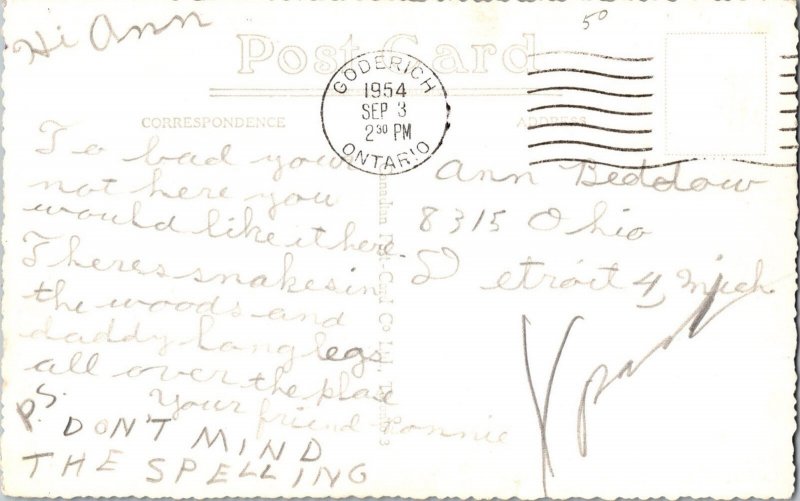 Hi Ann
50
Post Card
GODERICH
1954
SEP 3
2 30 PM
ONTARIO
CORRESPONDENCE
ADDRESS
To bad your
not here you
would like it here.
Theres snakes in
the woods and
daddy long legs
all over the place
Your friend Ronnie
P.S. DON'T MIND
THE SPELLING
Ann Beddow
8315 Ohio
Detroit 4, Mich
Canadian Post Card Co Ltd., Toronto